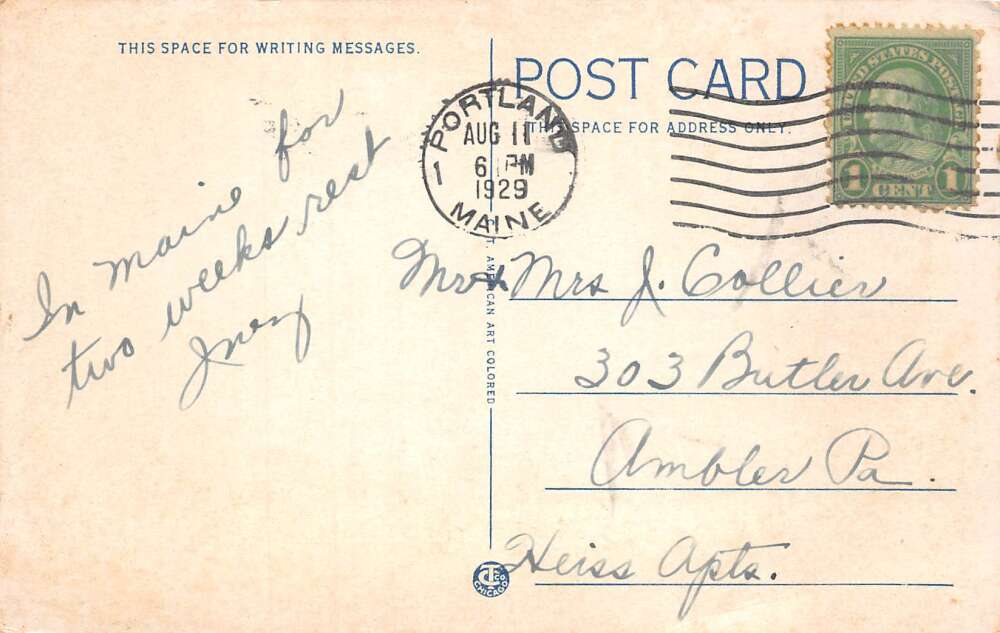 THIS SPACE FOR WRITING MESSAGES.
In Maine for
two weeks rest
Inez
POST CARD
THIS SPACE FOR ADDRESS ONLY.
PORTLAND
AUG 11
6 PM
1929
MAINE
1
UNITED STATES POSTAGE
1 CENT 1
C. T. AMERICAN ART COLORED
Mr & Mrs J. Collier
303 Butler Ave.
Ambler Pa.
Heiss Apts.
CT CO
CHICAGO